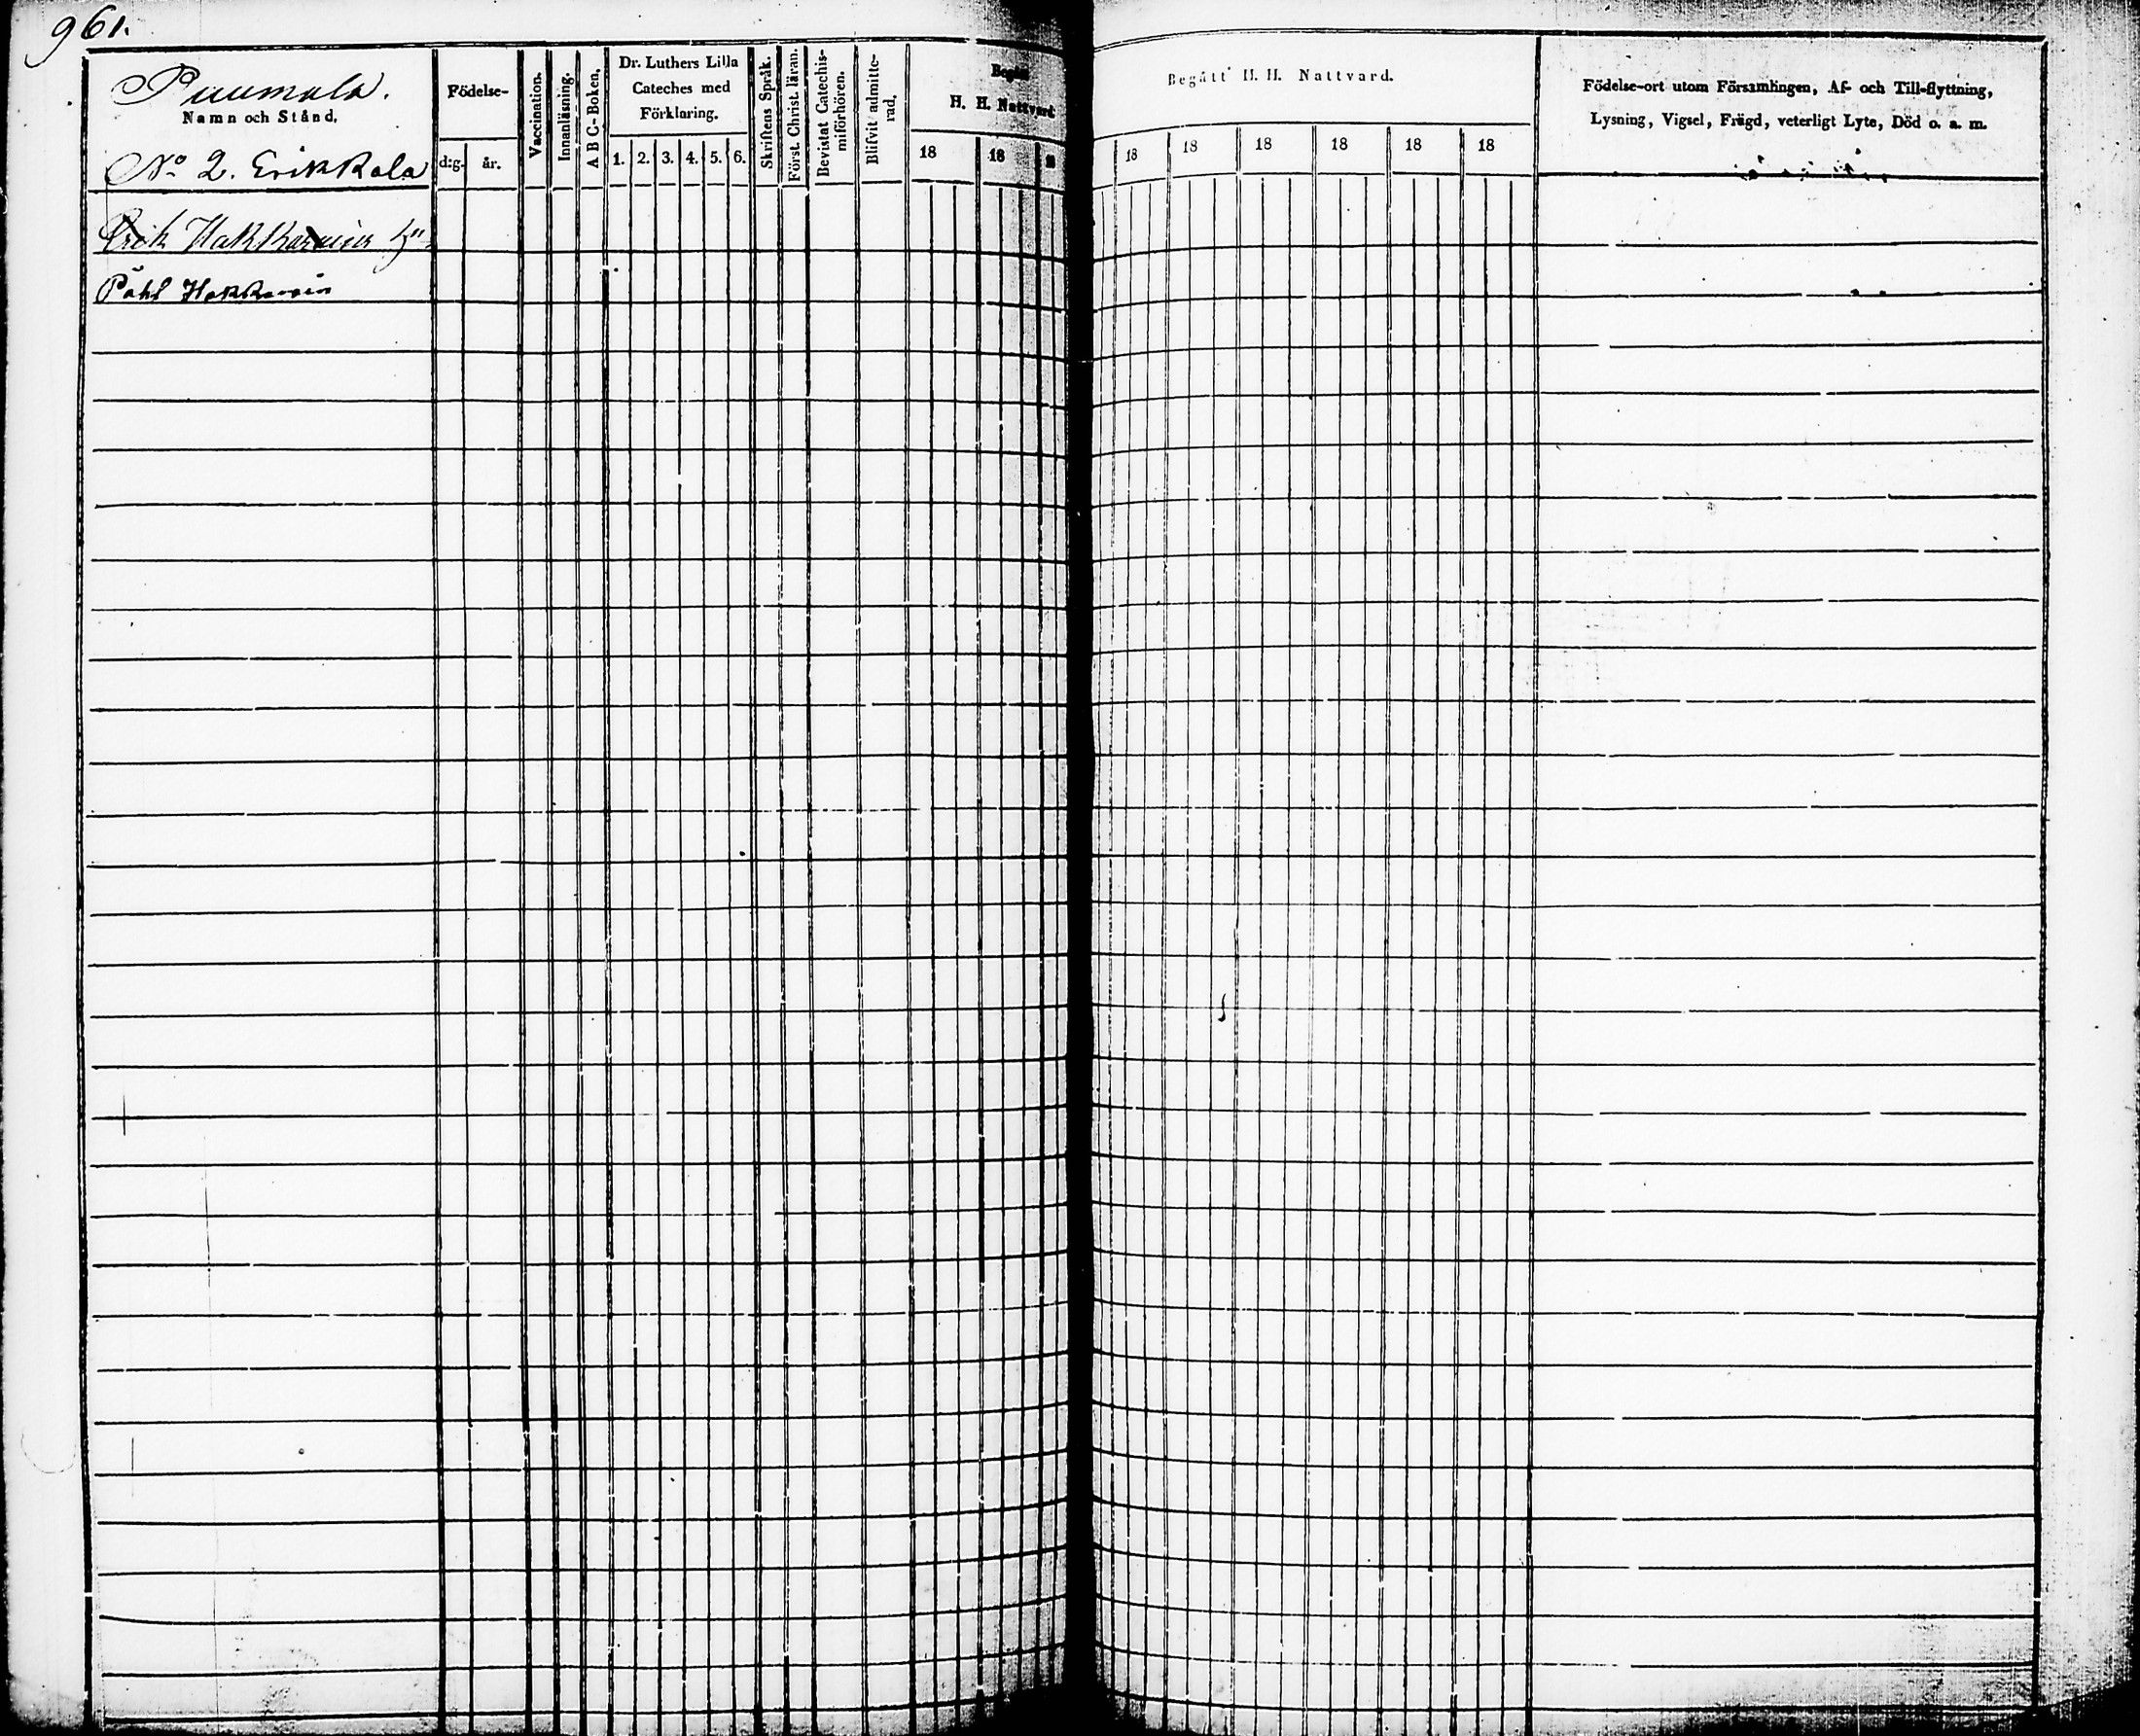 961.
Puumala.
Namn och Stånd.
No 2. Erikkala
Födelse-
d:g. år.
Vaccination.
Innanläsning.
A B C-Boken.
Dr. Luthers Lilla
Cateches med
Förklaring.
1. 2. 3. 4. 5. 6.
Skriftens Språk.
Först. Christ. läran.
Bevistat Catechis-
miförhören.
Blifvit admitte-
rad.
Begått
H. H. Nattvard
18 18 18
Begått H. H. Nattvard.
18 18 18 18 18 18
Födelse-ort utom Församlingen, Af- och Till-flyttning,
Lysning, Vigsel, Frägd, veterligt Lyte, Död o. a. m.
Erik Hakkarainen
Påhl Hakkarain